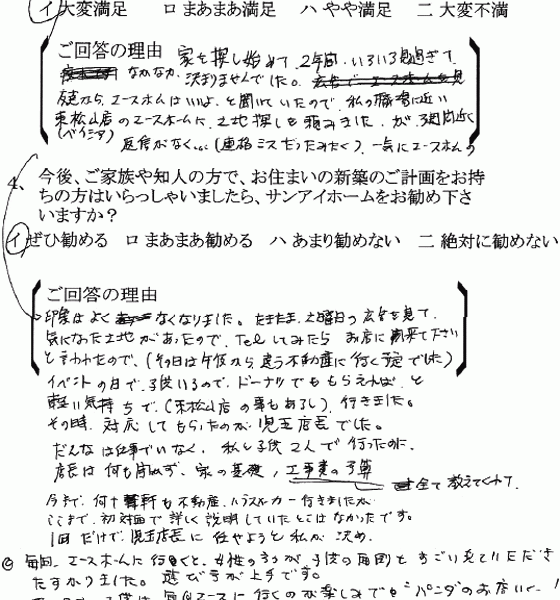 イ 大変満足　ロ まあまあ満足　ハ やや満足　二 大変不満
ご回答の理由
家を探し始めて、2年間、いろいろ見過ぎて
なかなか、決まりませんでした。
友達から、エースホームはいいよ。と聞いていたので、私の職場に近い
東松山店のエースホームに、土地探しを頼みました。が、3週間近く
(ベイシア)
返信がなく…(連絡ミスだったみたく)、一気にエースホームの
4、今後、ご家族や知人の方で、お住まいの新築のご計画をお持
ちの方はいらっしゃいましたら、サンアイホームをお勧め下さ
いますか？
イ ぜひ勧める　ロ まあまあ勧める　ハ あまり勧めない　二 絶対に勧めない
ご回答の理由
印象はよくなくなりました。たまたま、土曜日の広告を見て、
気になった土地があったので、Telしてみたら お店に来て下さい
と言われたので、(その日は午後から違う不動産に行く予定でした)
イベントの日で、子供いるので、ドーナツでももらえれば、と
軽い気持ちで、(東松山店の事もあるし)、行きました。
その時、対応してもらったのが、児玉店長でした。
だんなは仕事でいなく、私と子供2人で行ったのに、
店長は何も聞かず、家の基礎、工事費の予算
全て教えてくれて、
今まで、何十軒も不動産、ハウスメーカー行きましたが
ここまで、初対面で詳しく説明していたとこはなかったです。
1回だけで、児玉店長に任せようと私が決め、
毎回、エースホームに行くと、女性の方が、子供の面倒を すごい見ていただき
たすかりました。遊び方が上手です。
エースに行くのが楽しみでも"パンダのお店いく